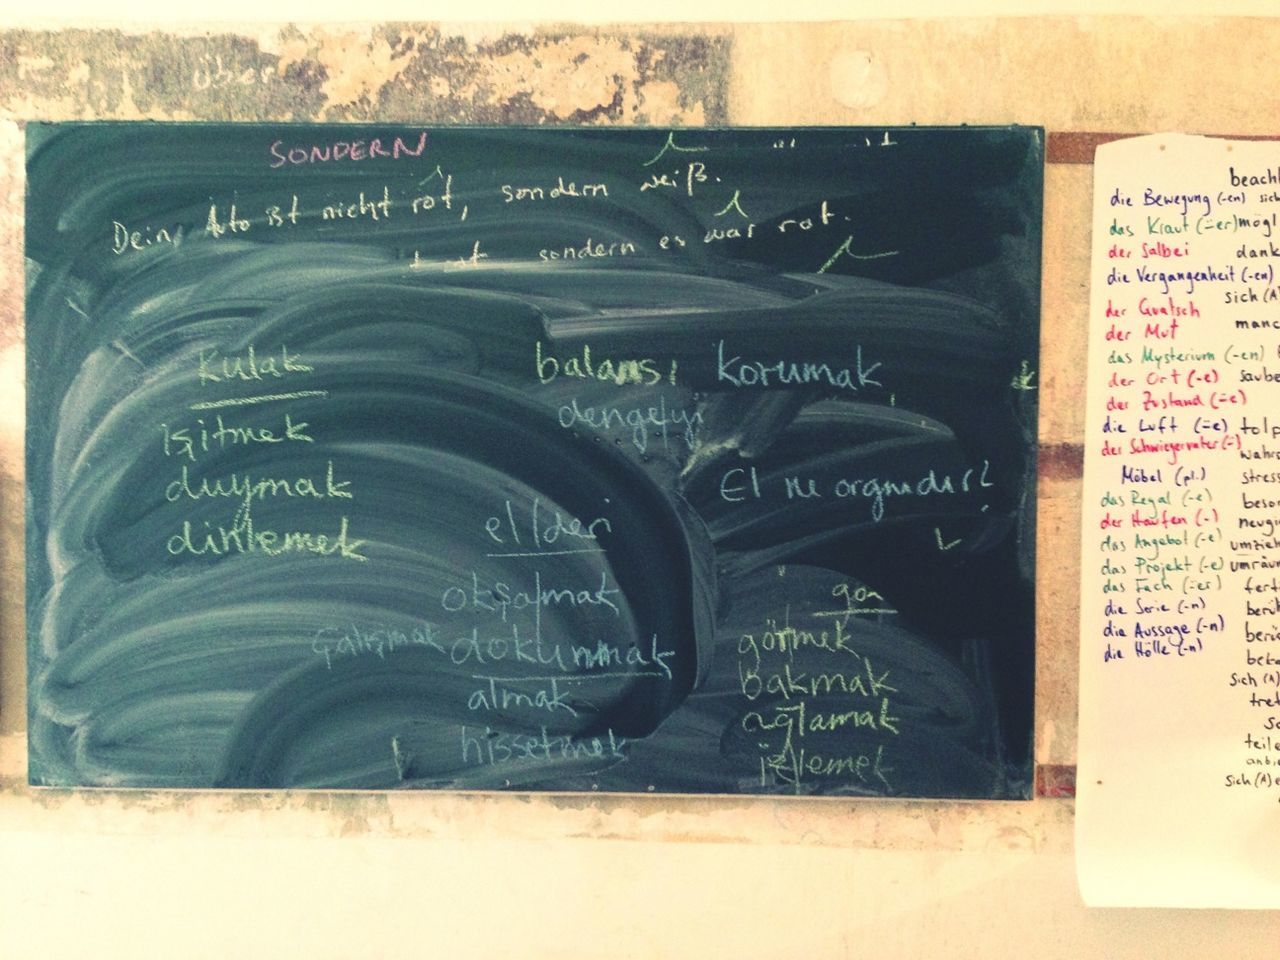 über
SONDERN
Dein Auto ist nicht rot, sondern weiß.
sondern es war rot.
kulak
işitmek
duymak
dinlemek
balansı korumak
dengeyi
El ne organıdır?
el/deri
okşamak
çalışmak dokunmak
almak
hissetmek
göz
görmek
bakmak
ağlamak
izlemek
die Bewegung (-en)
das Kraut (¨-er)
der Salbei
die Vergangenheit (-en)
der Quatsch
der Mut
das Mysterium (-en)
der Ort (-e)
der Zustand (¨-e)
die Luft (¨-e)
der Schwiegervater (¨-)
Möbel (pl.)
das Regal (-e)
der Haufen (-)
das Angebot (-e)
das Projekt (-e)
das Fach (¨-er)
die Serie (-n)
die Aussage (-n)
die Hölle (-n)
beach
sich
mögl
dank
sich (A)
manc
saube
tolp
wahrs
stress
beson
neugi
umzieh
umräum
fert
berüh
berü
sich (A)
tret
teile
anbie
sich (A) e